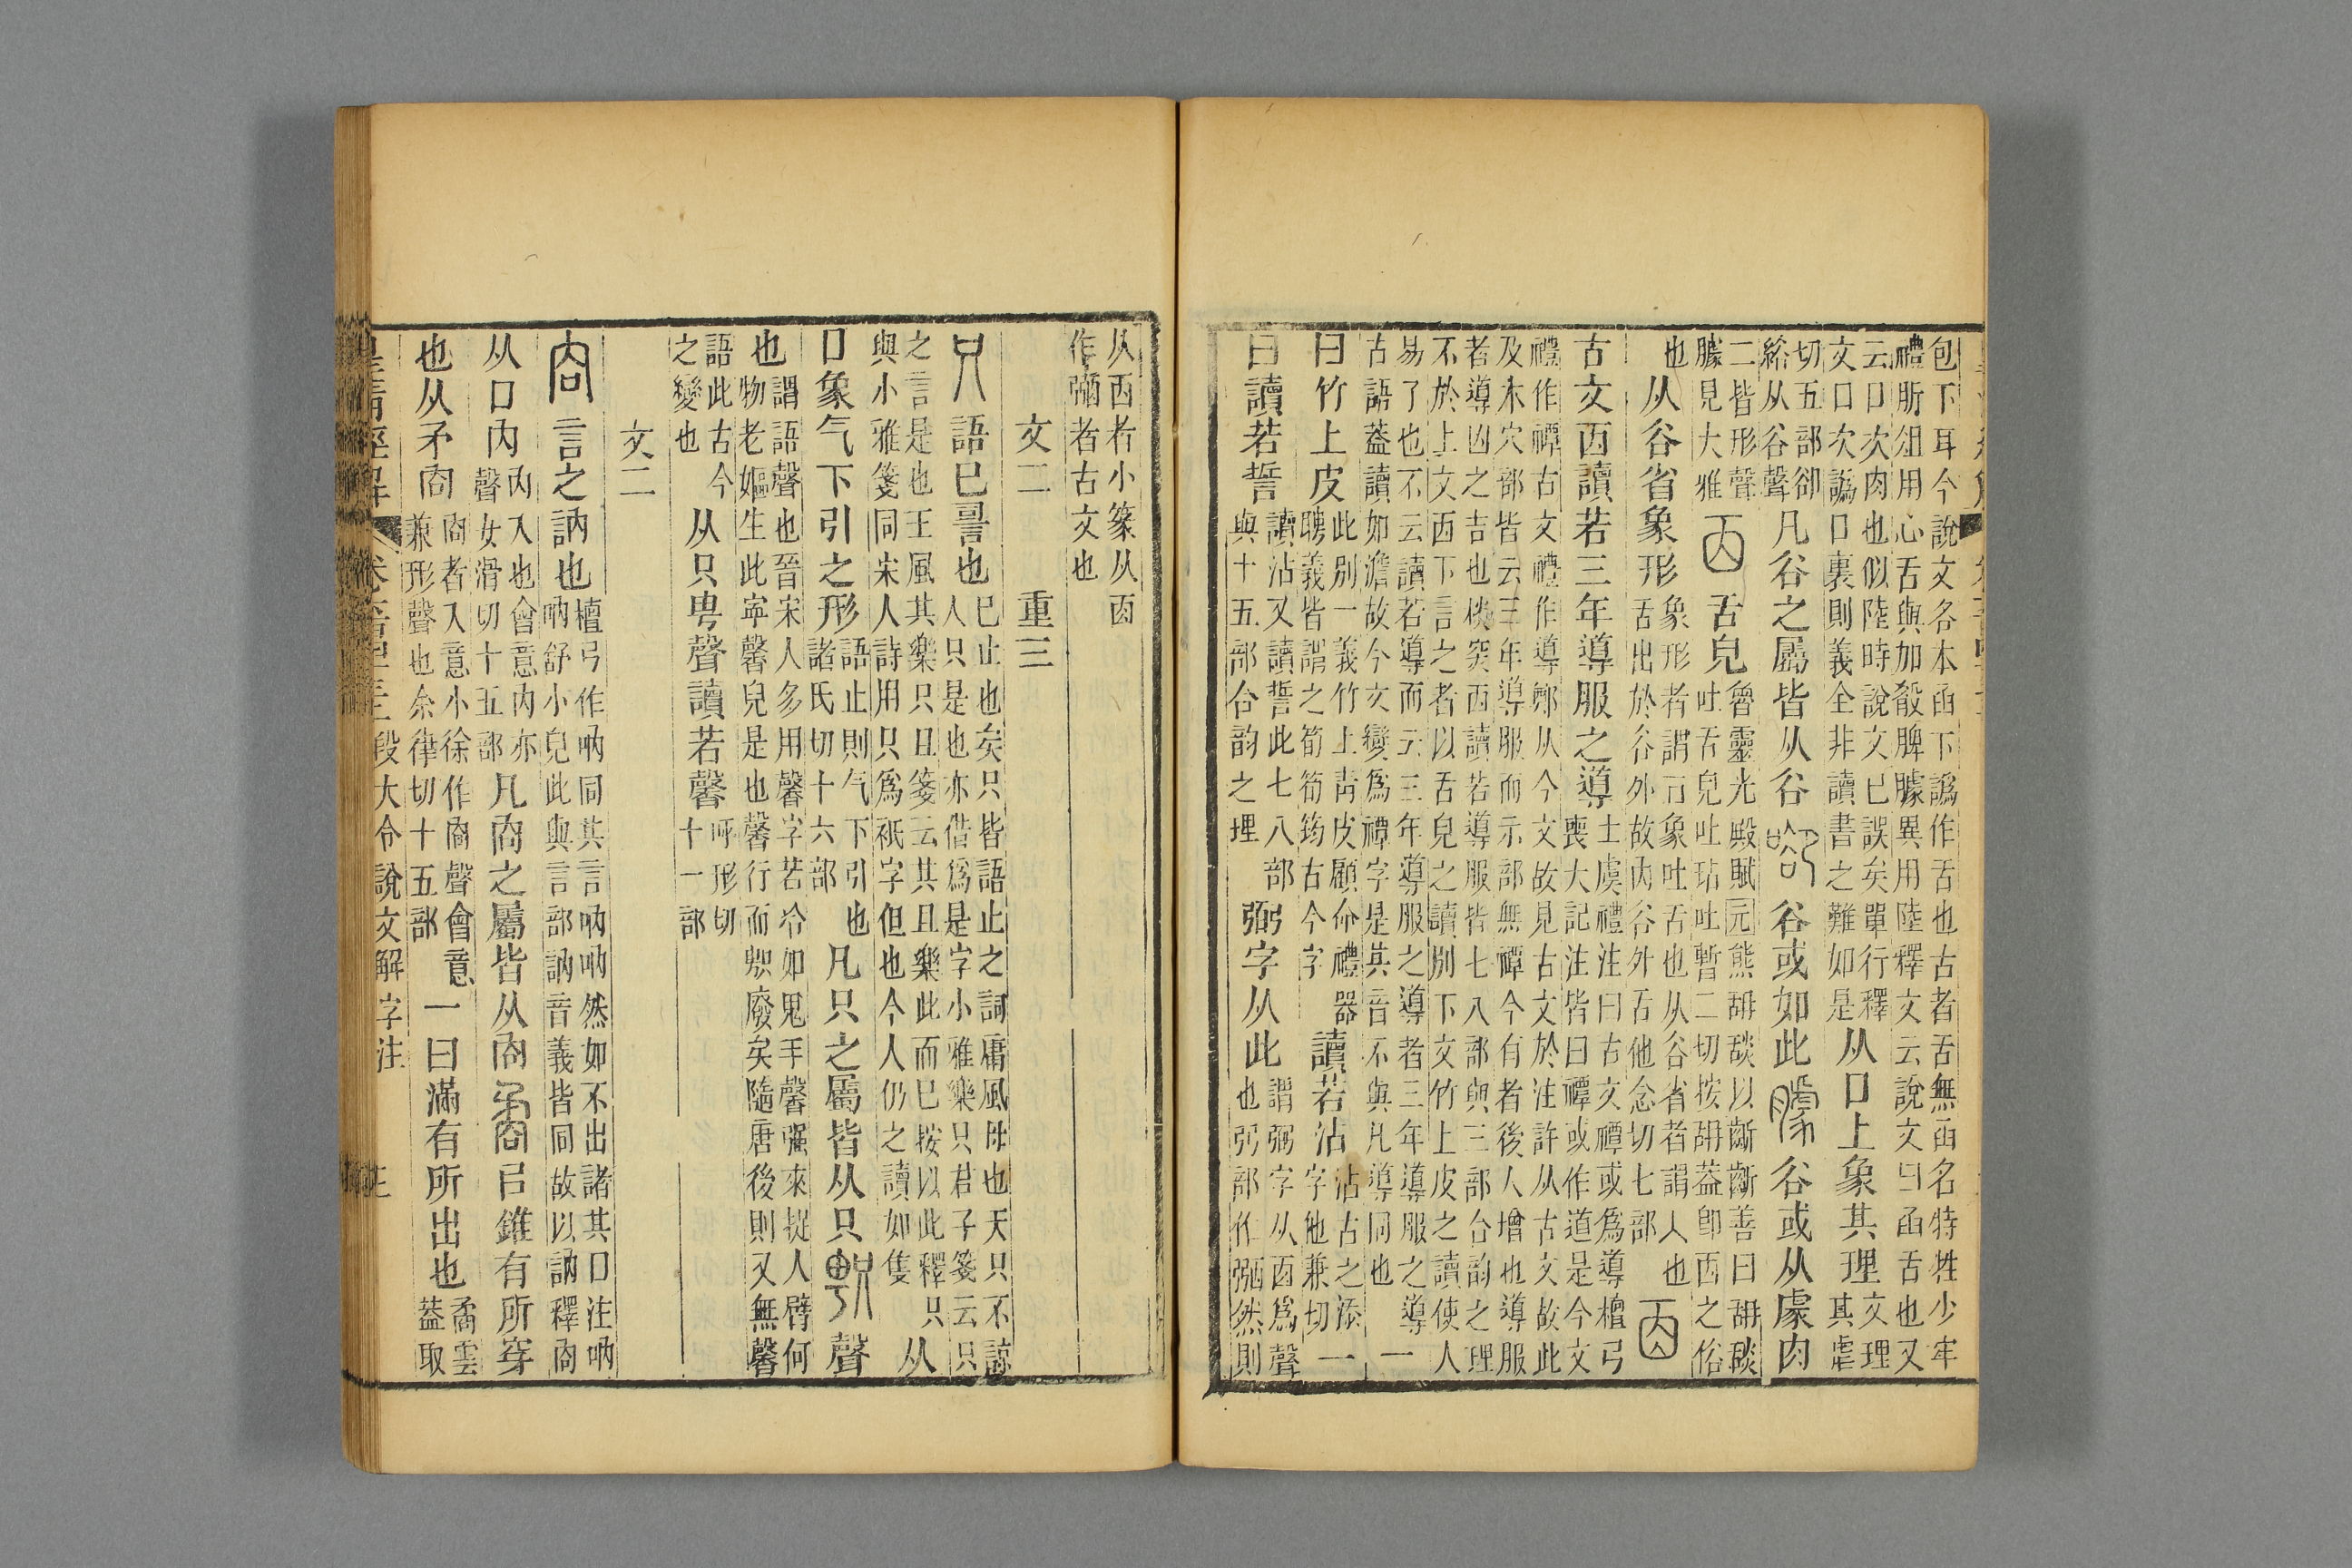 包下耳今說文各本函下譌作舌也古者舌無函名特牲少牢
禮肵俎用心舌與加殽脾臄異用陸釋文云說文曰函舌也又
云口次肉也似陸時說文已誤矣單行釋
文口次譌口裏則義全非讀書之難如是
从口上象其理
文理
其虐
切五部卻
綌从谷聲
凡谷之屬皆从谷
谷或如此
谷或从豦肉
二皆形聲
臄見大雅
㐁
舌皃
魯靈光殿賦元熊䑙䑙以齗齗善曰䑙䑙
吐舌皃吐玷吐暫二切按䑙葢卽㐁之俗
也
从谷省象形
象形者謂㐁象吐舌也从谷省者謂人也
舌出於谷外故內谷外舌他念切七部
古文㐁讀若三年導服之導
士虞禮注曰古文禫或爲導檀弓
喪大記注皆曰禫或作道是今文
禮作禫古文禮作導鄭从今文故見古文於注許从古文故此
及木穴部皆云三年導服而示部無禫今有者後人增也導服
者導凶之吉也棪突㐁讀若導服皆七八部與三部合韵之理
不於上文㐁下言之者以舌皃之讀別下文竹上皮之讀使人
易了也不云讀若導而云三年導服之導者三年導服之導一
古語葢讀如澹故今文變爲禫字是其音不與凡導同也
一
曰竹上皮
此別一義竹上靑皮顧命禮器
聘義皆謂之筍筠古今字
讀若沾
沾古之添
字他兼切
一
曰讀若誓
讀沾又讀誓此七八部
與十五部合韵之理
弼字从此
謂弼字从㐁爲聲
也弼部作弻然則
从㐁者小篆从㐁
作彌者古文也
文二　重三
只
語已䛐也
已止也矣只皆語止之詞庸風母也天只不諒
人只是也亦借爲是字小雅樂只君子箋云只
之言是也王風其樂只且箋云其且樂此而已按以此釋只
與小雅箋同宋人詩用只爲衹字但也今人仍之讀如隻
从
口象气下引之形
語止則气下引也
諸氏切十六部
凡只之屬皆从只
聲
也
謂語聲也晉宋人多用馨字若冷如鬼手馨强來捉人臂何
物老嫗生此寧馨兒是也馨行而䙫廢矣隨唐後則又無馨
語此古今
之變也
从只甹聲讀若馨
呼形切
十一部
文二
㕯
言之訥也
檀弓作吶同其言吶吶然如不出諸其口注吶
吶舒小皃此與言部訥音義皆同故以訥釋㕯
从口內
內入也會意內亦
聲女滑切十五部
凡㕯之屬皆从㕯
㠯錐有所穿
也从矛㕯
㕯者入意小徐作㕯聲會意
兼形聲也余律切十五部
一曰滿有所出也
矞雲
葢取
皇清經解
段大令說文解字注